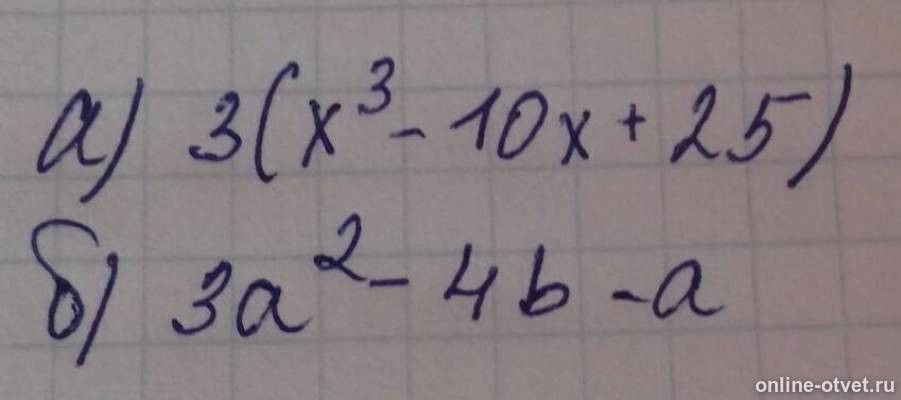 а) 3(x³ - 10x + 25)
б) 3a² - 4b - a
online-otvet.ru